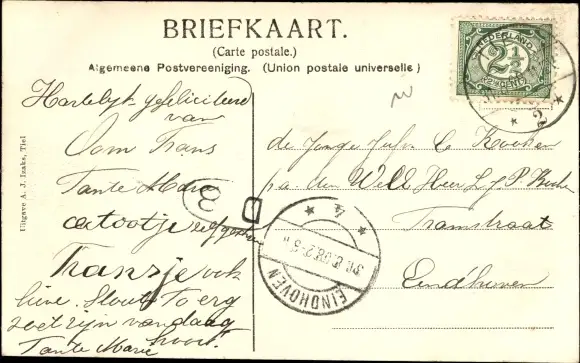 BRIEFKAART.
(Carte postale.)
Algemeene Postvereeniging. (Union postale universelle)
NEDERLAND
2½
CENT
2
Uitgave A. J. Izaks, Tiel
Hartelijk gefeliciteerd
van
Oom Frans
Tante Marie
3
D
Fransje ook
lieve. Stout To erg
zoet zijn vandaag
hoor!
Tante Marie
de Jonge Jufr C Kooken
p/a den Well Heer L J P
Tramstraat
Eindhoven
EINDHOVEN
4